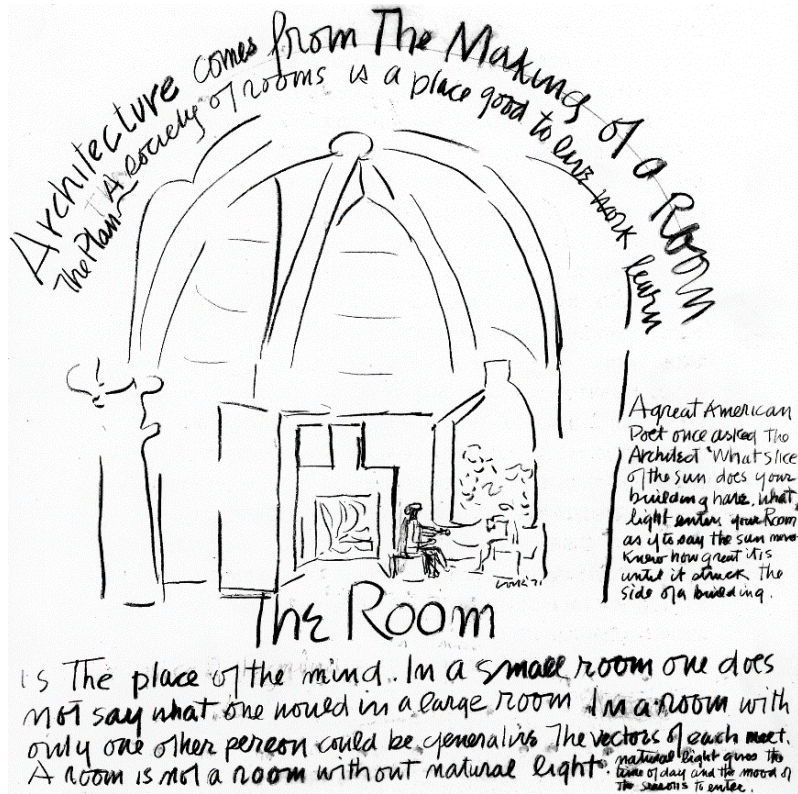 Architecture comes from The Making of a Room
The Plan A society of rooms is a place good to live work learn
A great American
Poet once asked The
Architect 'What slice
of the sun does your
building have, what
light enters your Room
as if to say the sun never
knew how great it is
until it struck the
side of a building.
Lou K '71
The Room
is The place of the mind. In a small room one does
not say what one would in a large room In a room with
only one other person could be generative The vectors of each meet.
A room is not a room without natural light.
natural light gives the
time of day and the mood of
The seasons to enter.